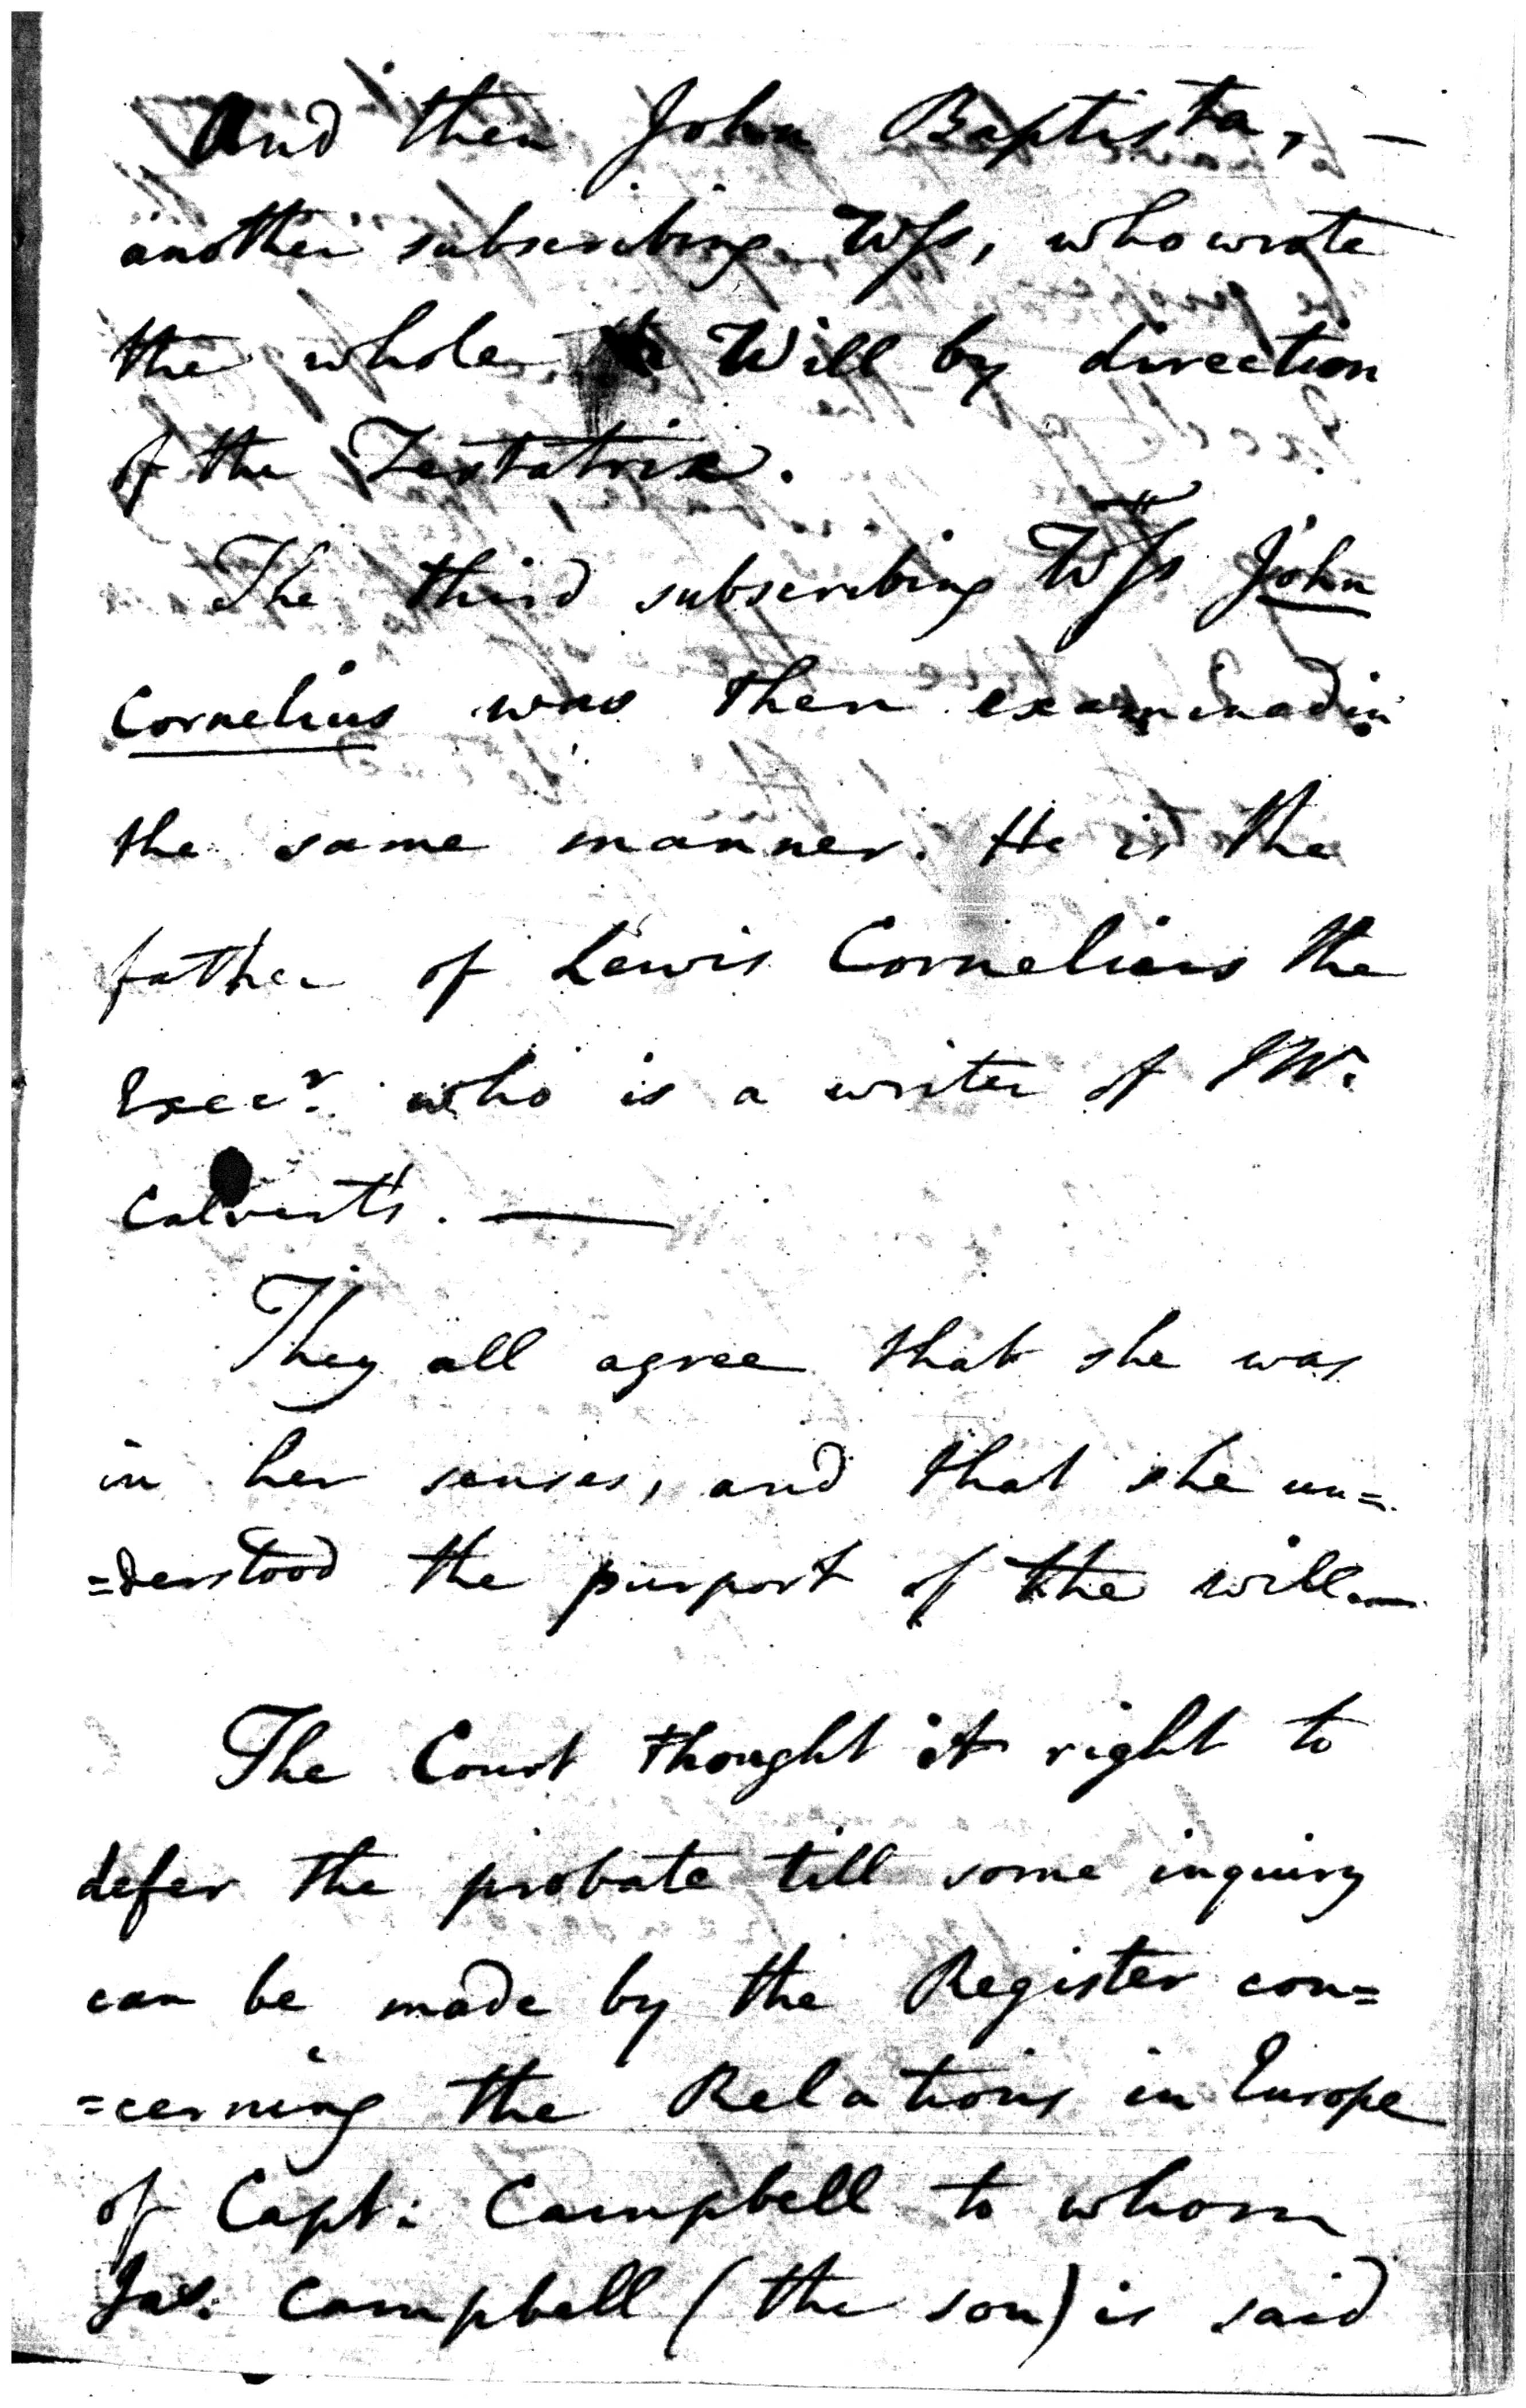 And then John Baptista, —
another subscribing Wss, who wrote
the whole Will by direction
of the Testatrix.
The third subscribing Wss John
Cornelius was then examined in
the same manner. He is the
father of Lewis Cornelius the
Execr. who is a writer of Mr.
Calvert's. —
They all agree that she was
in her senses, and that she un=
=derstood the purport of the will. —
The Court thought it right to
defer the probate till some inquiry
can be made by the Register con=
=cerning the Relations in Europe
of Capt: Campbell to whom
Jas. Campbell (the son) is said